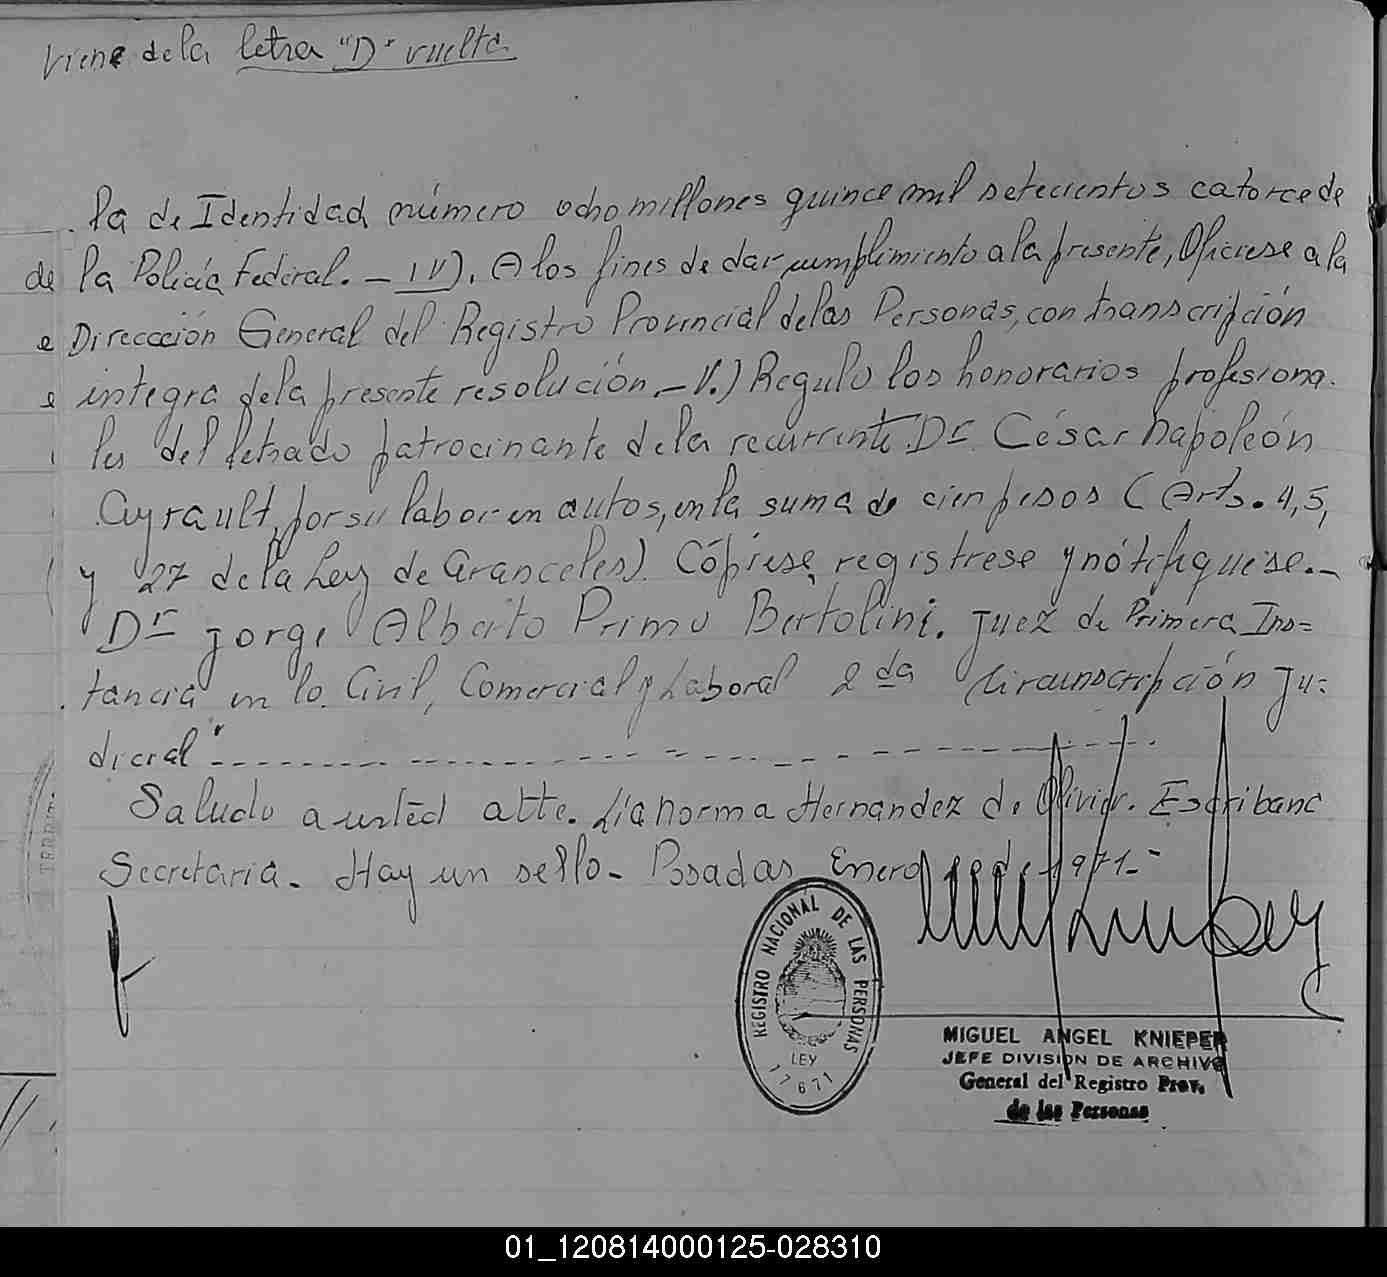 Viene de la letra "D" vuelta
la de Identidad número ocho millones quince mil setecientos catorce de
de la Policía Federal. - IV). A los fines de dar cumplimiento a la presente, Oficiese a la
e Direccción General del Registro Provincial de las Personas, con transcripción
e integra de la presente resolución. - V.) Regulo los honorarios profesiona-
les del letrado patrocinante de la recurrente Dr. César Napoleón
Ayrault, por su labor en autos, en la suma de cien pesos (Arts. 4, 5,
y 27 de la Ley de Aranceles). Cópiese, registrese y nótifiquese.-
Dr Jorge Alberto Primo Bertolini. Juez de Primera Ins=
tancia en lo Civil, Comercial y Laboral 2da Circunscripción Ju=
dicial"
Saludo a usted atte. Lía Norma Hernandez de Olivier. Escribana
Secretaria. Hay un sello. Posadas, Enero de 1971.-
REGISTRO NACIONAL DE LAS PERSONAS
LEY
17671
MIGUEL ANGEL KNIEPER
JEFE DIVISION DE ARCHIVO
General del Registro Prov.
de las Personas
01_120814000125-028310